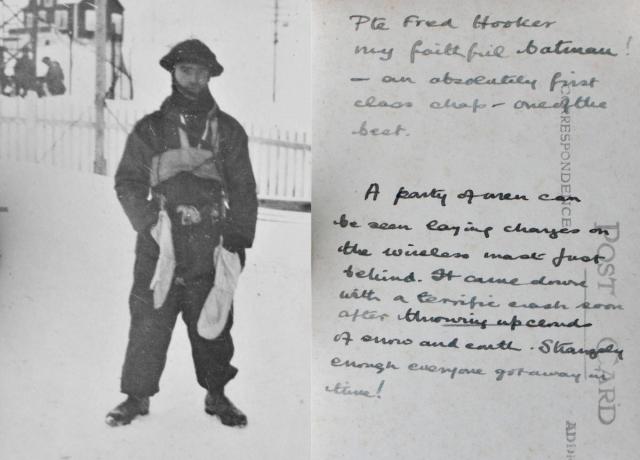 Pte Fred Hooker
my faithful batman!
- an absolutely first
class chap - one of the
best.
A party of men can
be seen laying charges on
the wireless mast just
behind. It came down
with a terrific crash soon
after throwing up clouds
of snow and earth. Strangely
enough everyone got away in
time!
CORRESPONDENCE
POST CARD
ADDR